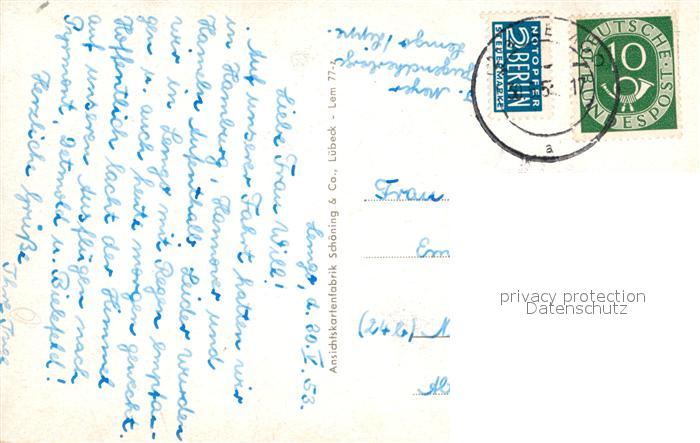 Lemgo, d. 20. V. 53.
Liebe Frau Will!
Auf unserer Fahrt hatten wir
in Hamburg, Hannover und
Hameln Aufenthalt. Leider wurden
wir in Lemgo mit Regen empfan-
gen u. auch heute morgen geweckt.
Hoffentlich lacht der Himmel
auf unseren Ausflügen nach
Pyrmont, Detmold u. Bielefeld!
Herzliche Grüße
Ihre
Ansichtskartenfabrik Schöning & Co., Lübeck - Lem 77-z
Meyer
Jugendherberge
Lemgo/Lippe.
NOTOPFER
2 BERLIN
STEUERMARKE
DEUTSCHE
10
BUNDESPOST
a
Frau
(24a)
privacy protection
Datenschutz